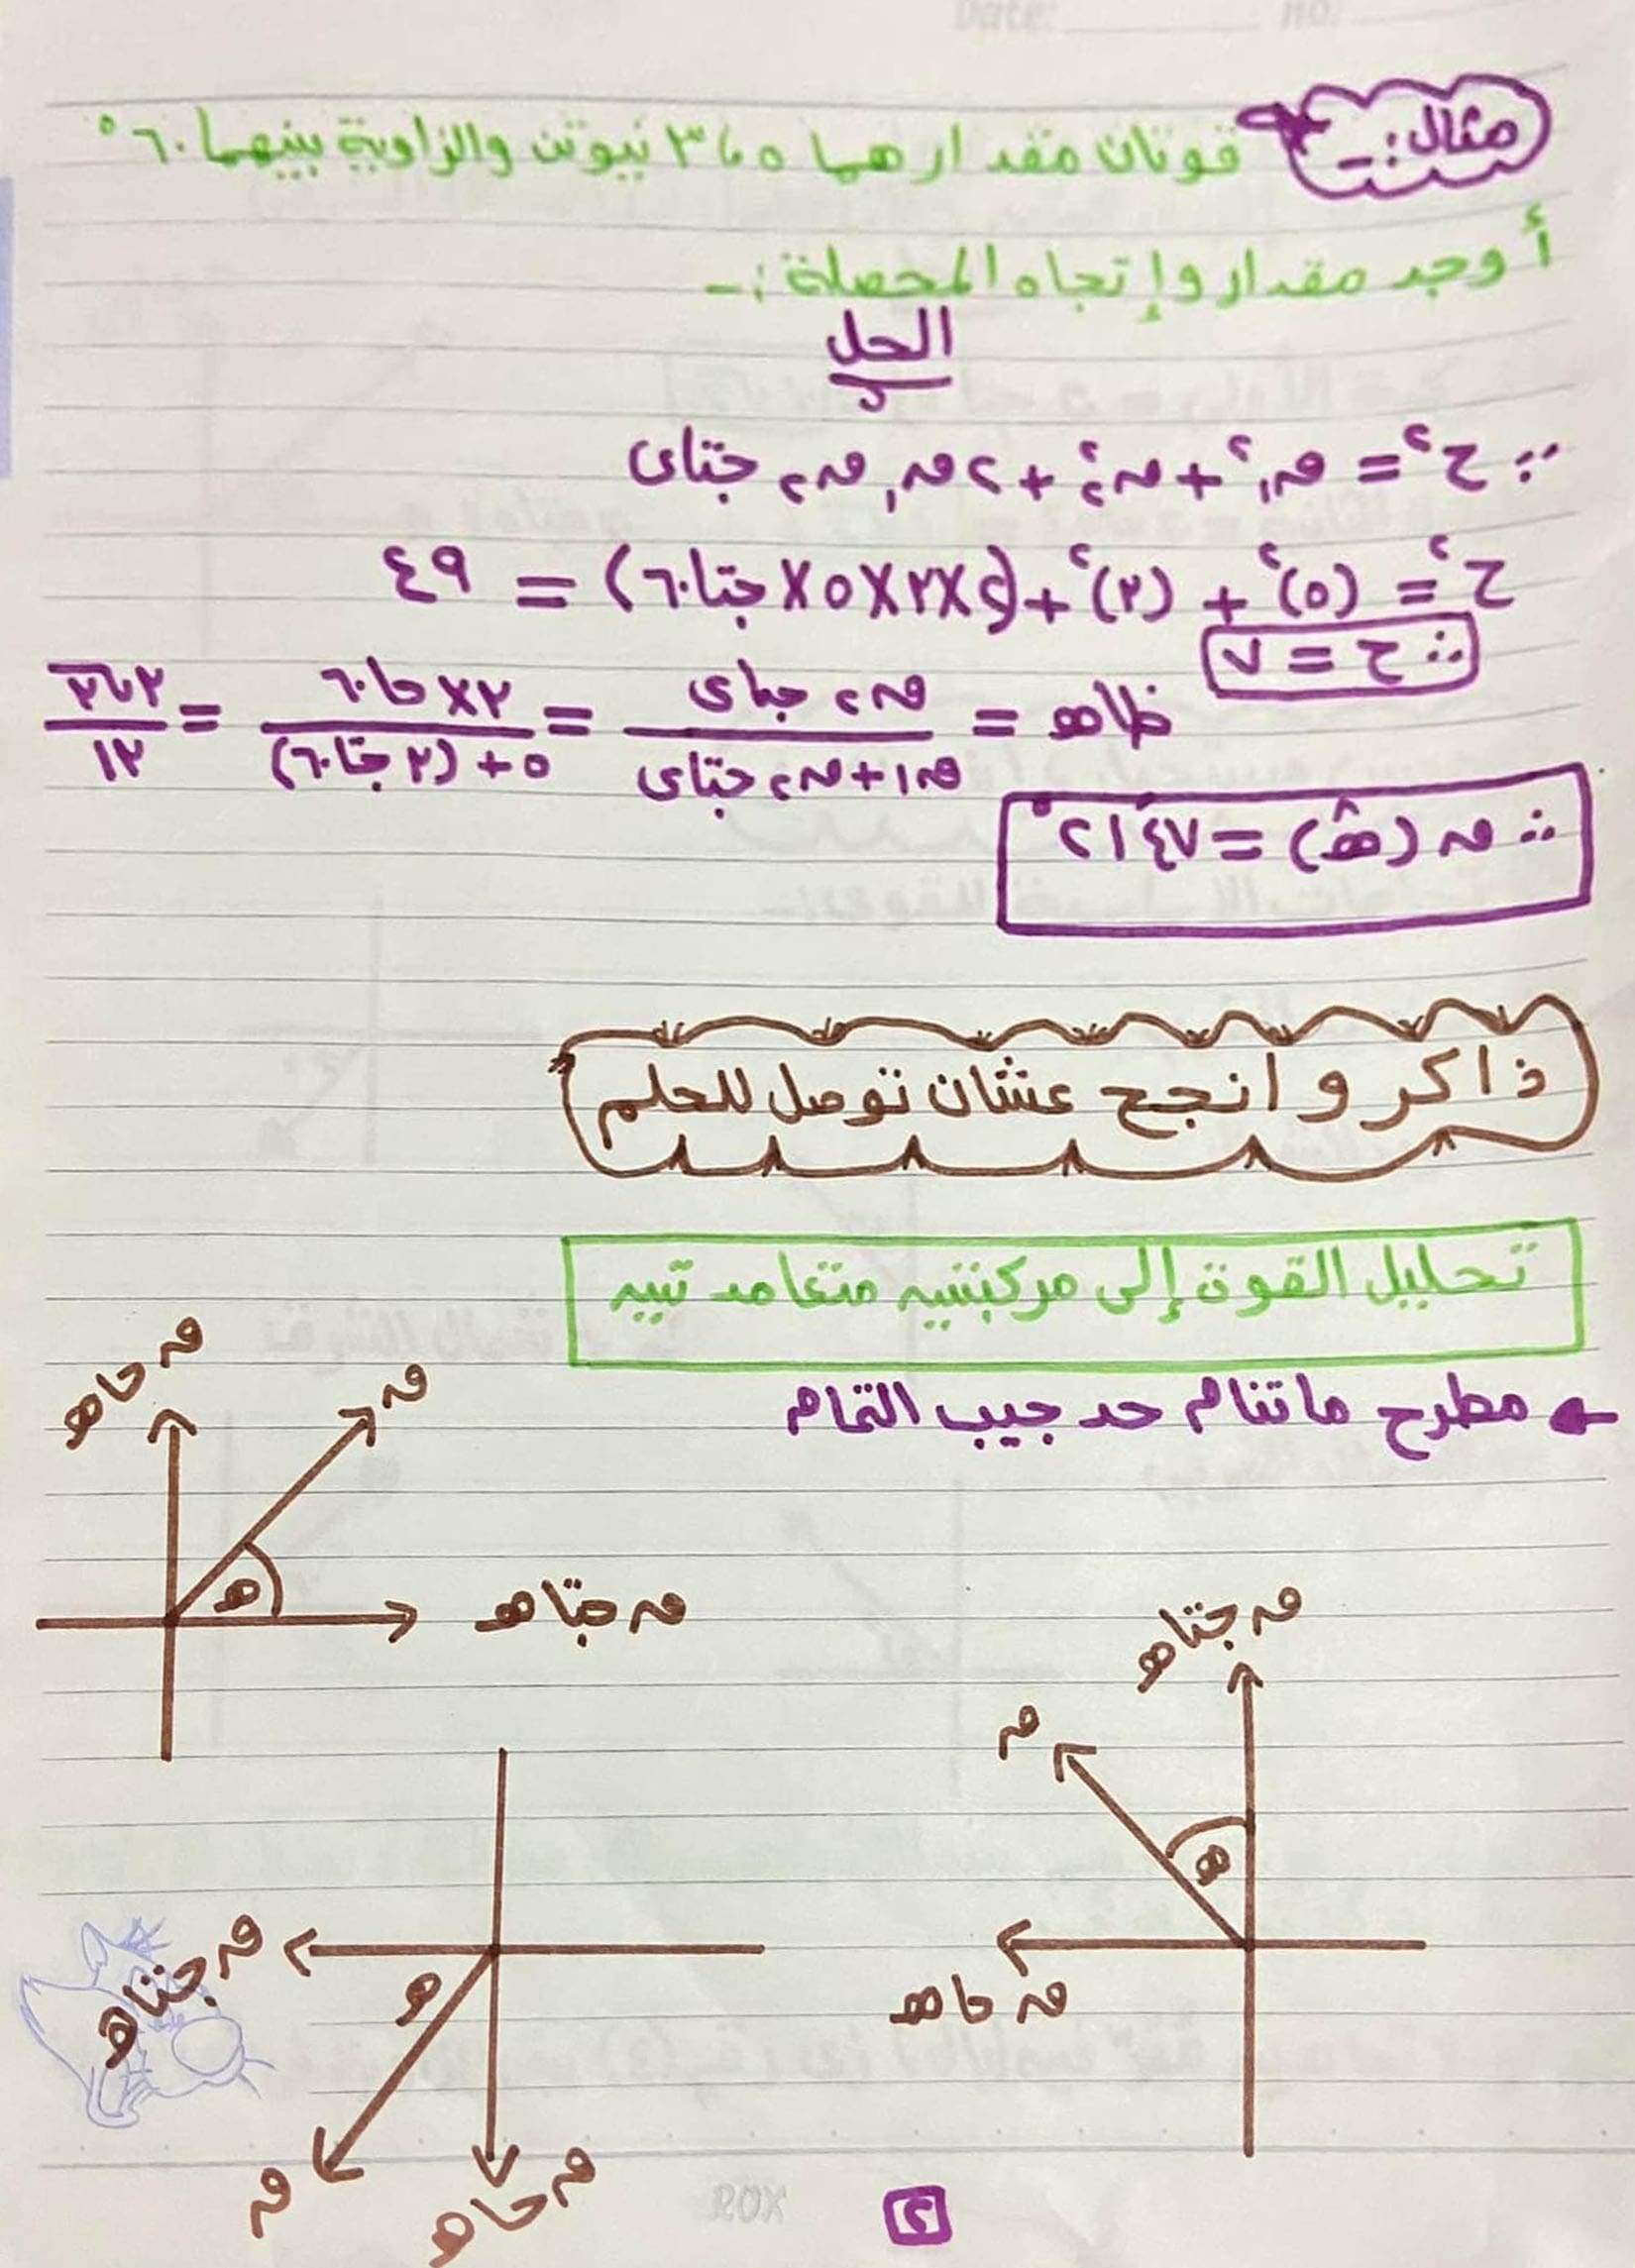 Date: no.
مثال:-
قوتان مقدارهما ٥ ، ٣ نيوتن والزاوية بينهما ٦٠°
أوجد مقدار وإتجاه المحصلة :-
الحل
∵ ح² = ق₁² + ق₂² + ٢ق₁ ق₂ جتاى
ح² = (٥)² + (٣)² + (٢×٣×٥×جتا٦٠) = ٤٩
∴ ح = ٧
ظاهـ = ق₂ جاى / ق₁+ق₂ جتاى = ٣×جا٦٠ / ٥+(٣جتا٦٠) = ٣√٣ / ١٣
∴ ق(هـ) = ٤٧ ٢١°
ذاكر و انجح عشان توصل للحلم
تحليل القوة إلى مركبتيه متعامدتيه
مطرح ماتنام حد جيب التمام
ق جاهـ
ق
هـ
ق جتاهـ
ق جتاهـ
ق
هـ
ق جاهـ
ق جتاهـ
هـ
ق
ق جاهـ
ROX
٢